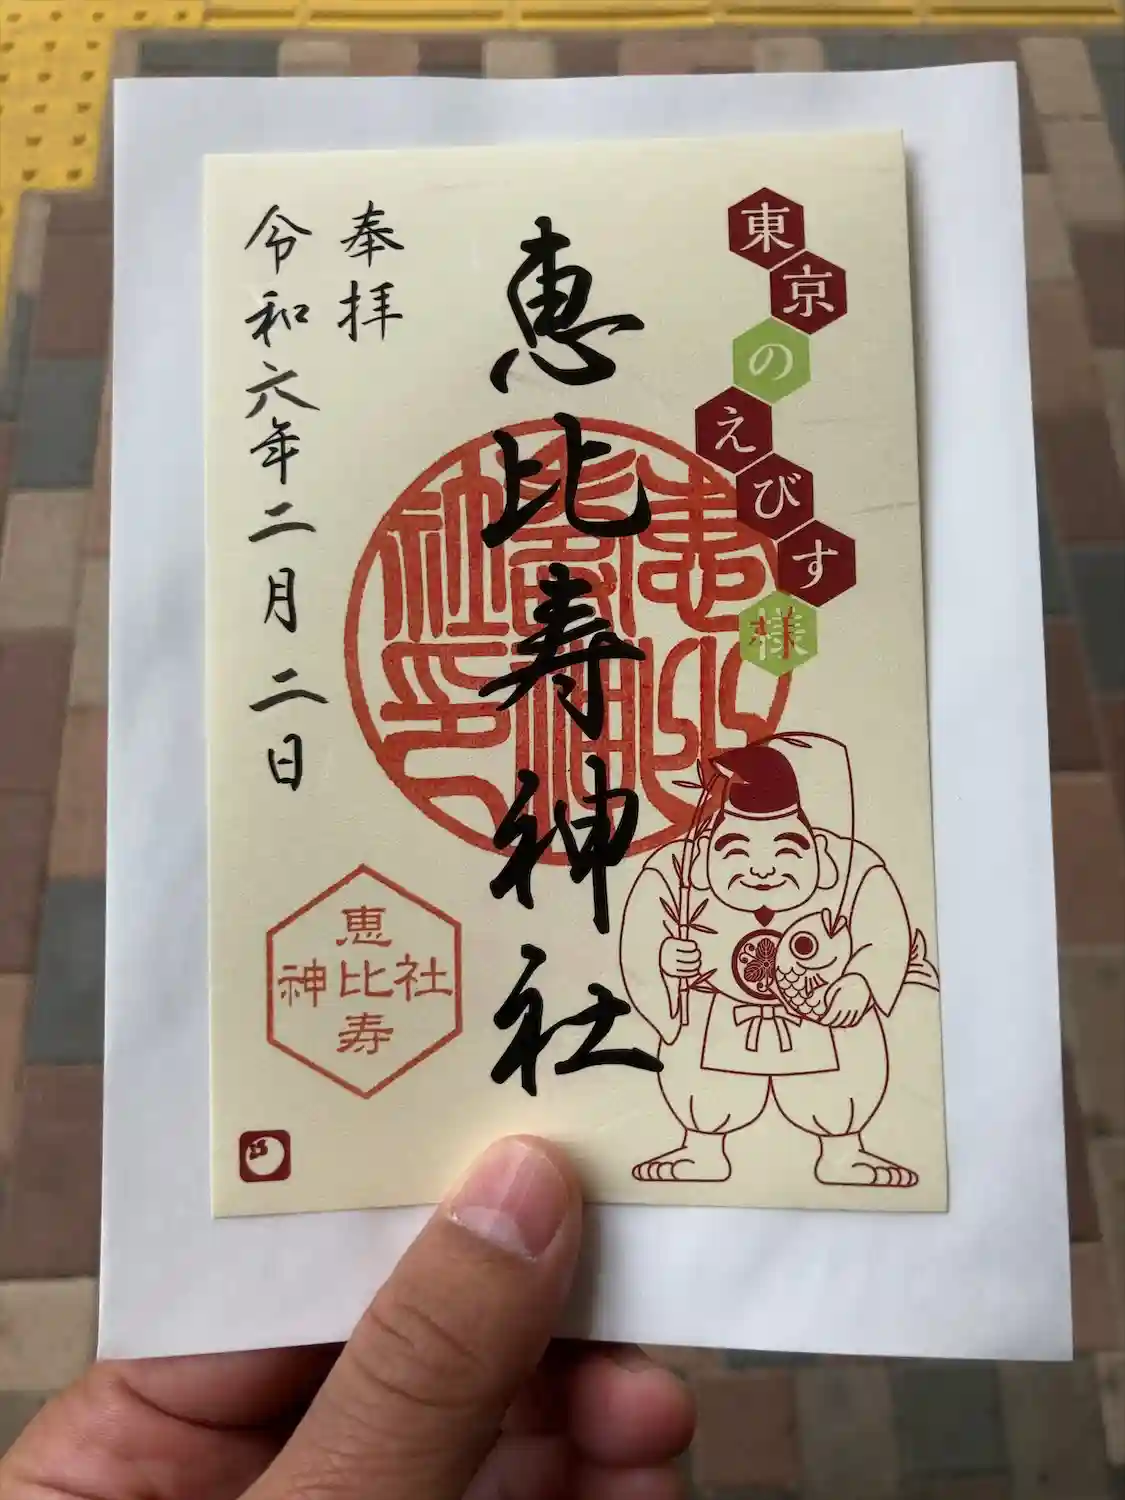 東京のえびす様
恵比寿神社
奉拝
令和六年二月二日
恵比寿
神社
恵比寿神社印